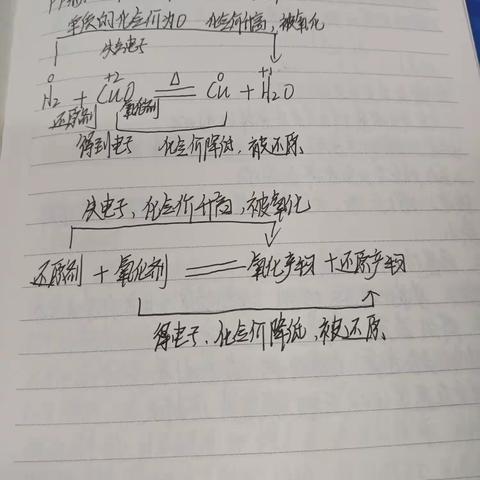 单质的化合价为0 化合价升高，被氧化
失去电子
0 +2 0 +1
H2 + CuO △ Cu + H2O
还原剂 氧化剂
得到电子 化合价降低，被还原
失电子、化合价升高，被氧化
还原剂 + 氧化剂 = 氧化产物 + 还原产物
得电子、化合价降低、被还原